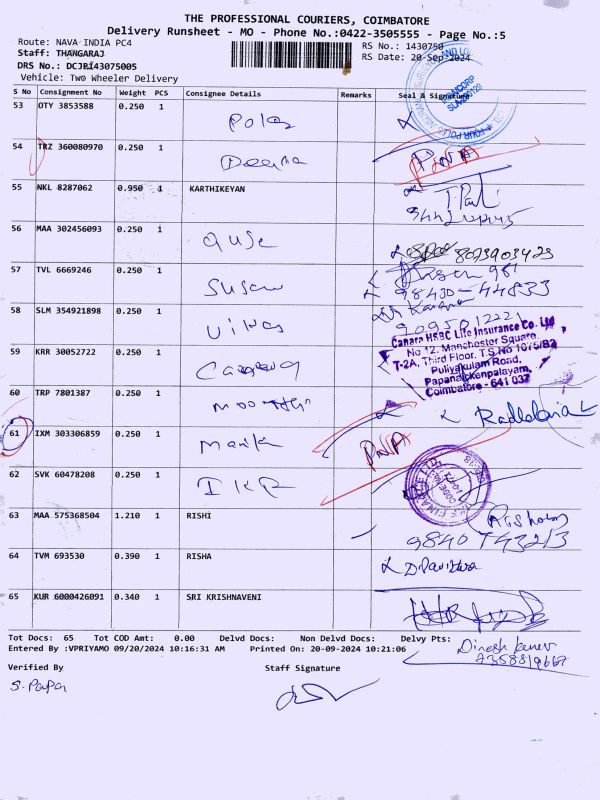 THE PROFESSIONAL COURIERS, COIMBATORE
Delivery Runsheet - MO - Phone No.:0422-3505555 - Page No.:5
Route: NAVA INDIA PC4
RS No.: 1430750
Staff: THANGARAJ
RS Date: 20-Sep-2024
DRS No.: DCJBI43075005
Vehicle: Two Wheeler Delivery
S No Consignment No Weight PCS Consignee Details Remarks Seal & Signature
53 OTY 3853588 0.250 1
54 TRZ 360080970 0.250 1 Deepa PNA
55 NKL 8287062 0.950 1 KARTHIKEYAN
56 MAA 302456093 0.250 1 8023903423
57 TVL 6669246 0.250 1 Susan
98430-44833
58 SLM 354921898 0.250 1 Vikas
9095012221
59 KRR 30052722 0.250 1
Canara HSBC Life Insurance Co. Ltd
No 12, Manchester Square,
T-2A, Third Floor, T.S No 1075/B2
Puliyakulam Road,
Papanaickenpalayam,
Coimbatore - 641 037
60 TRP 7801387 0.250 1 Moorthi
61 IXM 303306859 0.250 1 PNA
62 SVK 60478208 0.250 1 IKF
63 MAA 575368504 1.210 1 RISHI
64 TVM 693530 0.390 1 RISHA
65 KUR 6000426091 0.340 1 SRI KRISHNAVENI
Tot Docs: 65 Tot COD Amt: 0.00 Delvd Docs: Non Delvd Docs: Delvy Pts:
Entered By :VPRIYAMO 09/20/2024 10:16:31 AM Printed On: 20-09-2024 10:21:06
Dinesh kumar
7358819667
Verified By Staff Signature
S. Papa